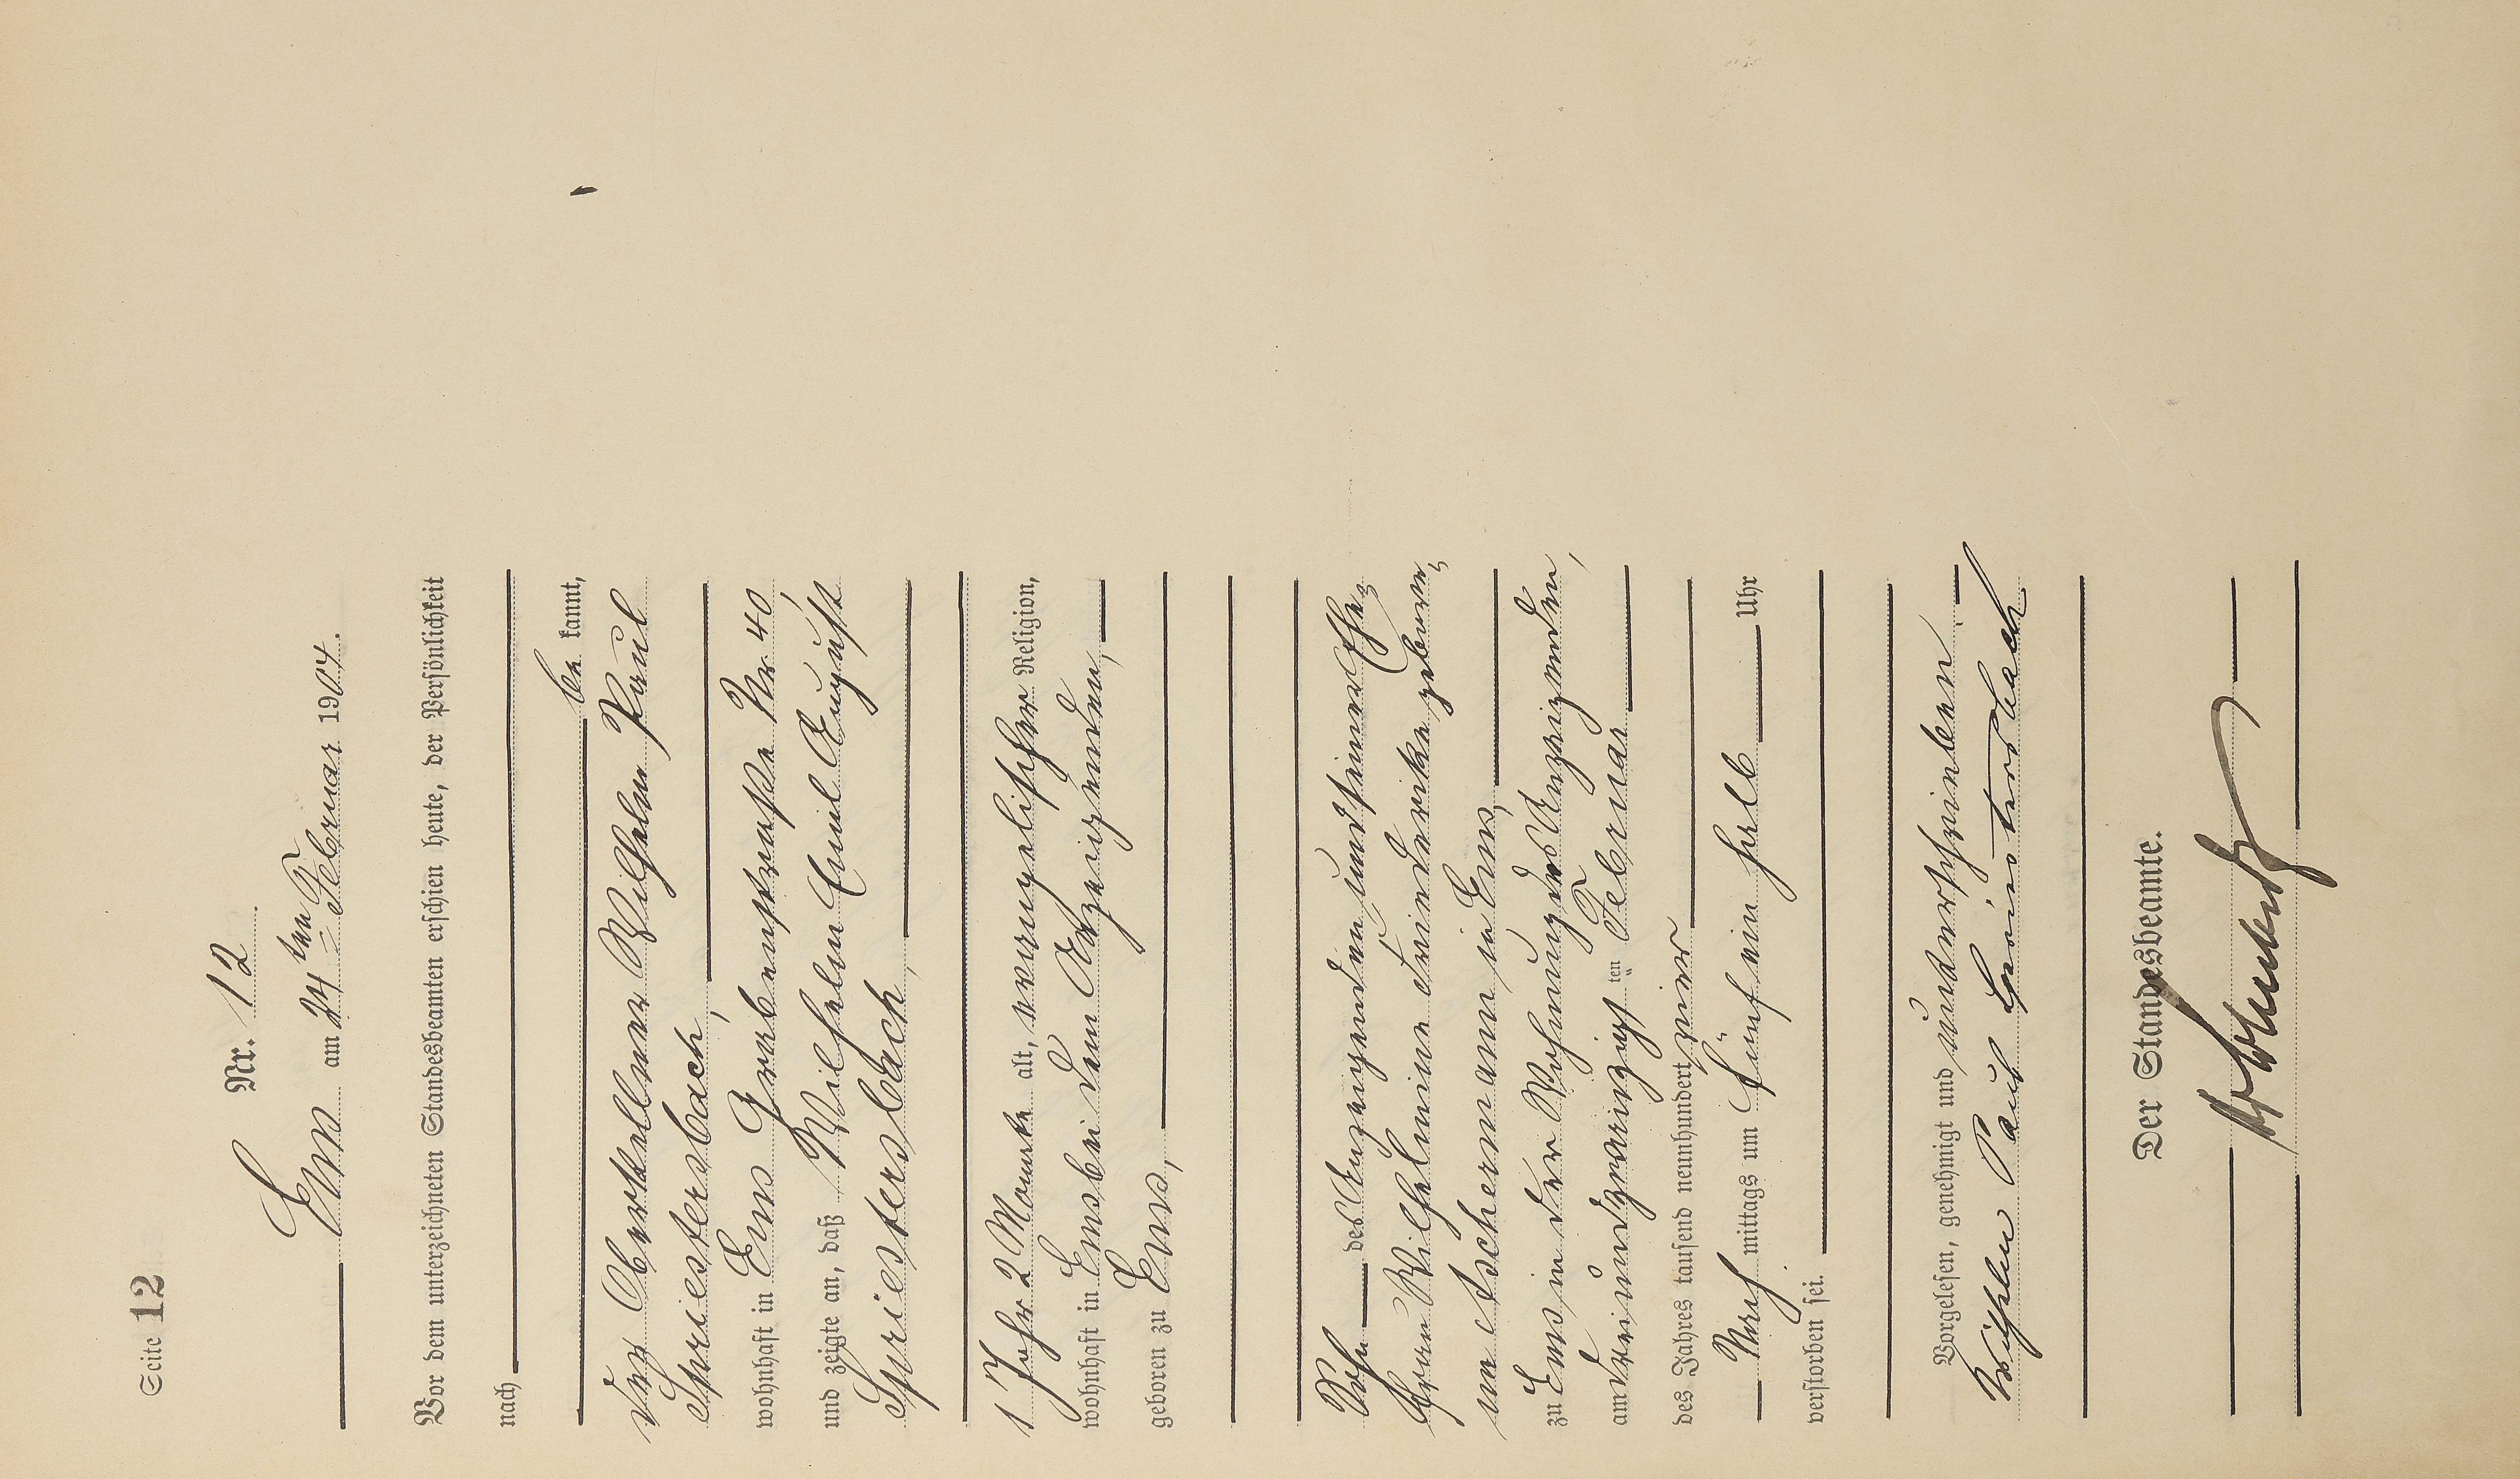 Seite 12
Nr. 12
Ems am 24ten Februar 1904.
Vor dem unterzeichneten Standesbeamten erschien heute, der Persönlichkeit
nach
be kannt,
der Oberkellner Wilhelm Paul
Spriestersbach,
wohnhaft in Ems Grabenstraße Nr. 40,
und zeigte an, daß Wilhelm Emil August
Spriestersbach,
1 Jahr 2 Monate alt, evangelischer Religion,
wohnhaft in Ems bei dem Anzeigenden,
geboren zu Ems,
Sohn des Anzeigenden und seiner Ehe-
frau Wilhelmine Friederike gebore-
ne Aschermann in Ems,
zu Ems in der Wohnung des Anzeigenden,
am dreiundzwanzigsten Februar
des Jahres tausend neunhundert vier
Nach mittags um fünf ein halb Uhr
verstorben sei.
Vorgelesen, genehmigt und unterschrieben
Wilhelm Paul Spriestersbach
Der Standesbeamte.